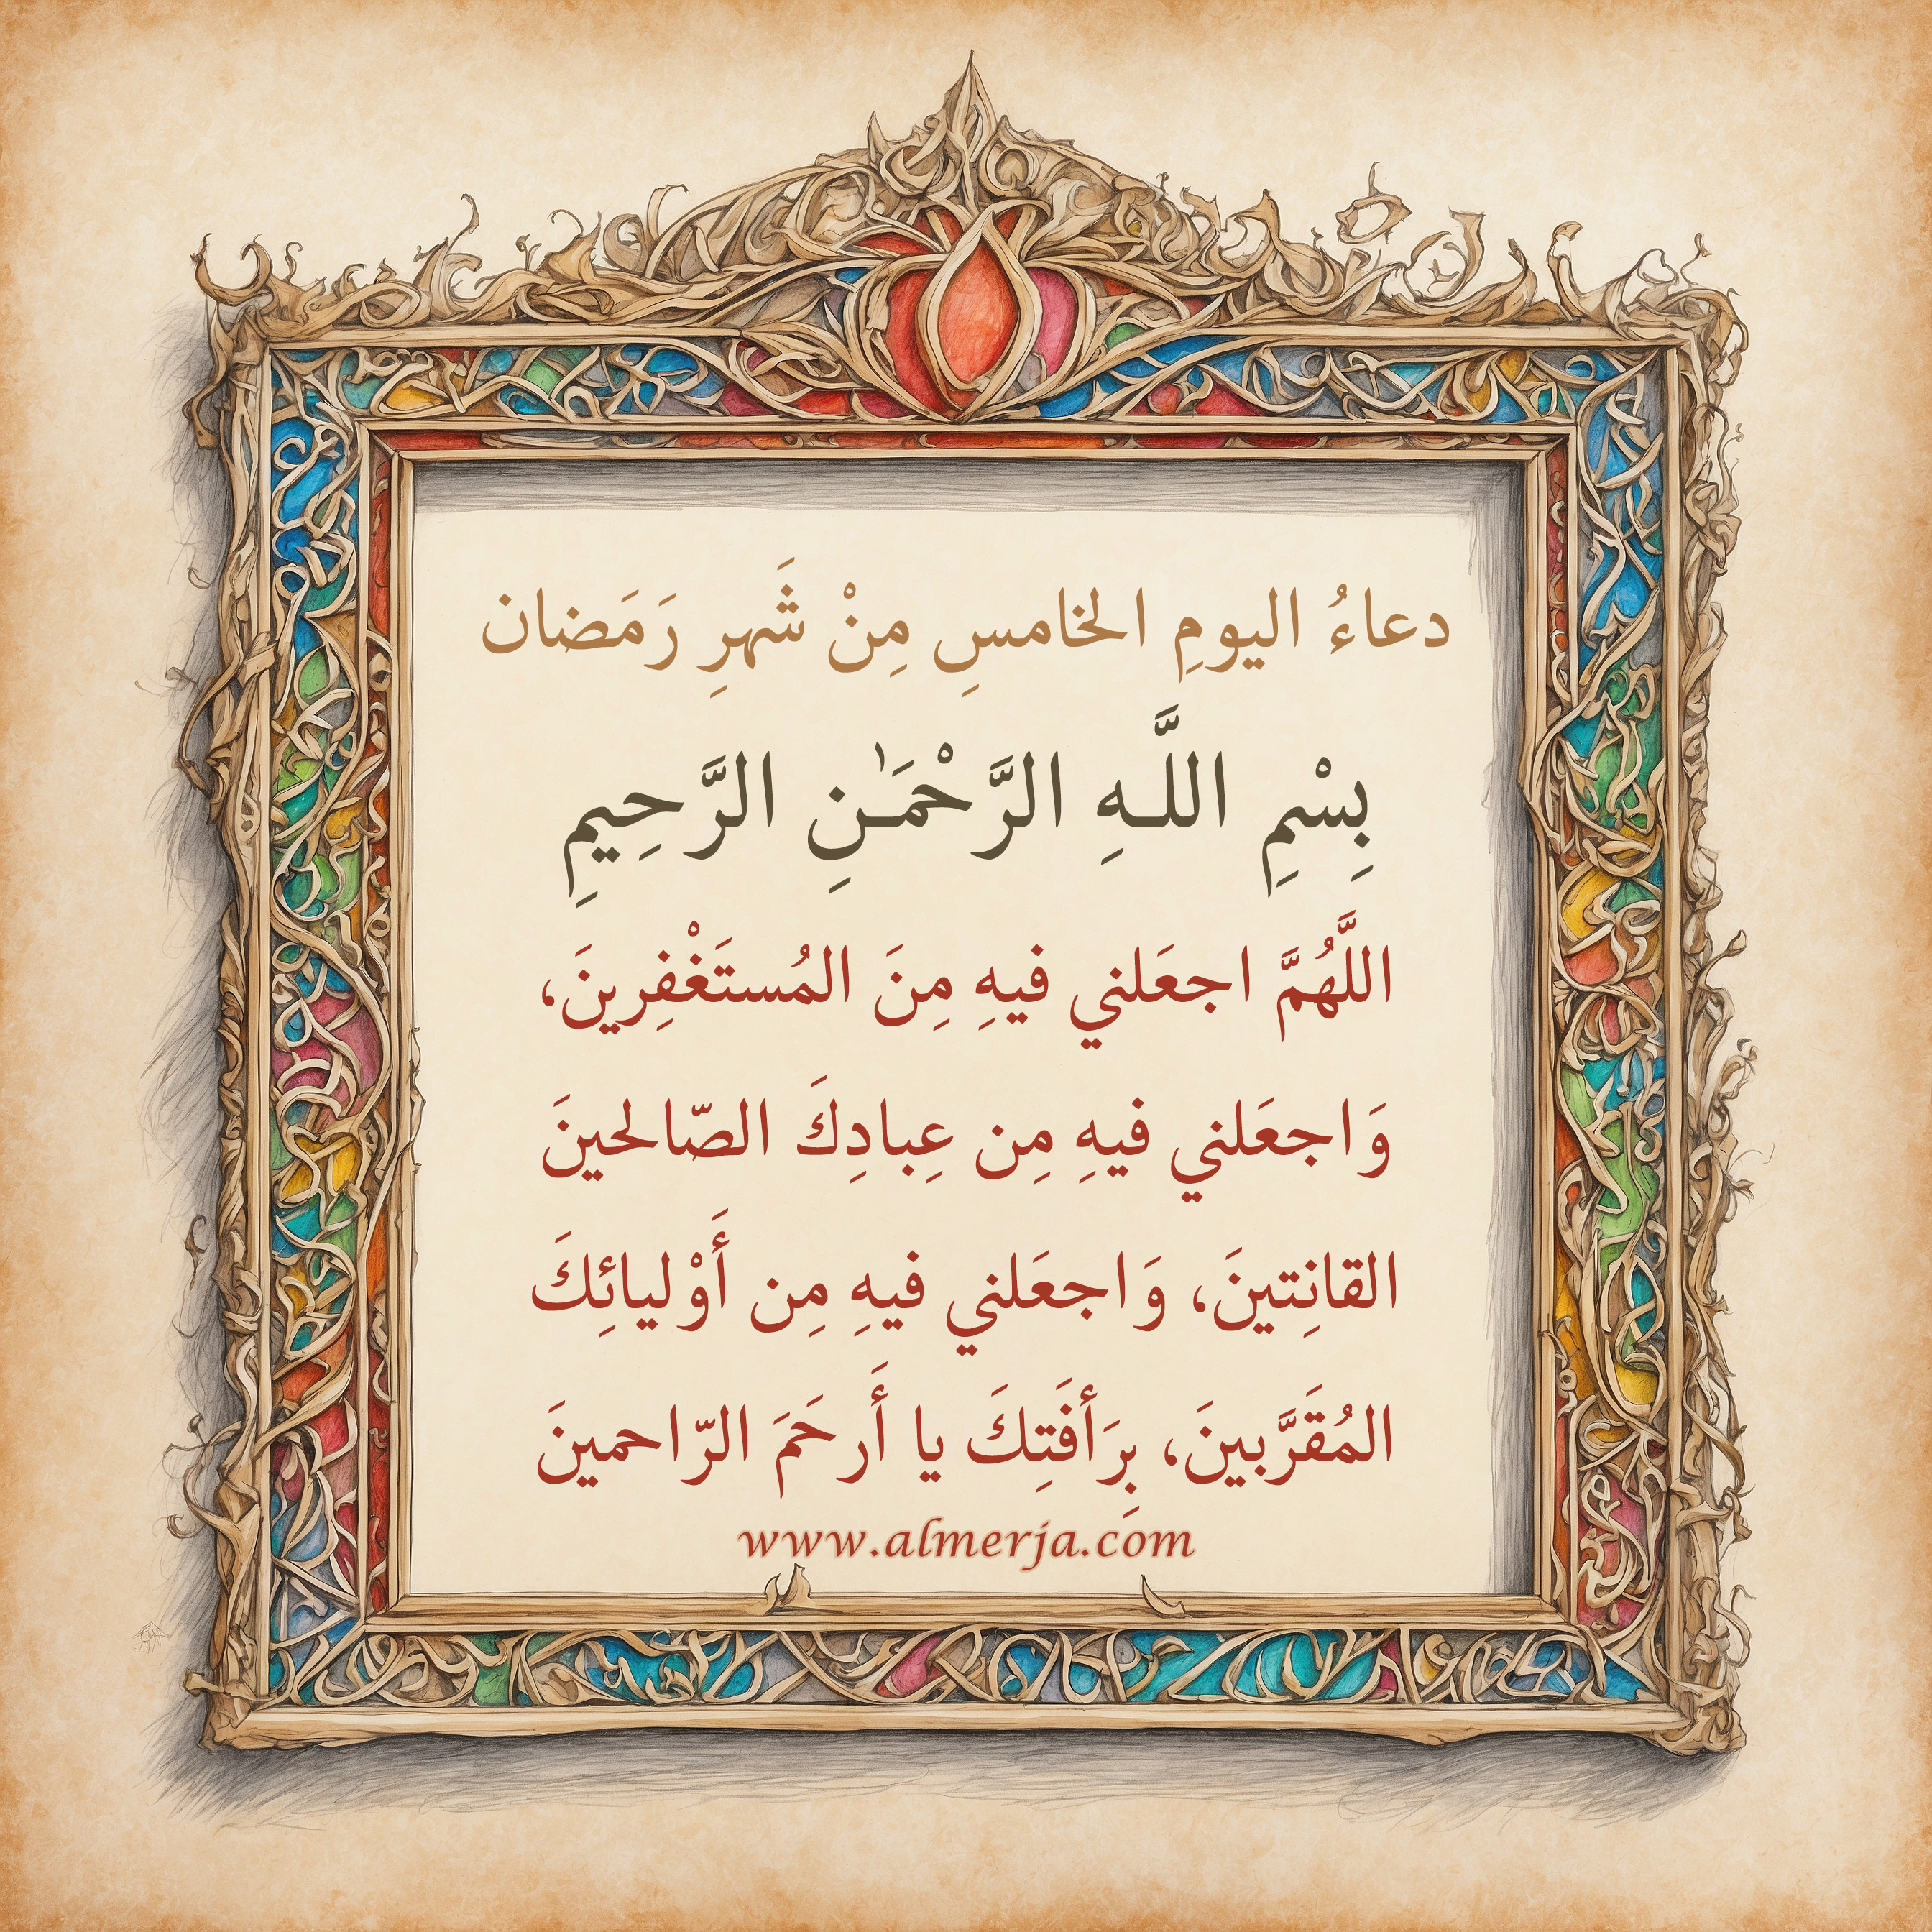 دعاءُ اليومِ الخامسِ مِنْ شَهرِ رَمَضان
بِسْمِ اللَّـهِ الرَّحْمَـٰنِ الرَّحِيمِ
اللَّهُمَّ اجعَلني فيهِ مِنَ المُستَغْفِرينَ،
وَاجعَلني فيهِ مِن عِبادِكَ الصّالحينَ
القانِتينَ، وَاجعَلني فيهِ مِن أَوْليائِكَ
المُقَرَّبينَ، بِرَأفَتِكَ يا أَرحَمَ الرّاحمينَ
www.almerja.com